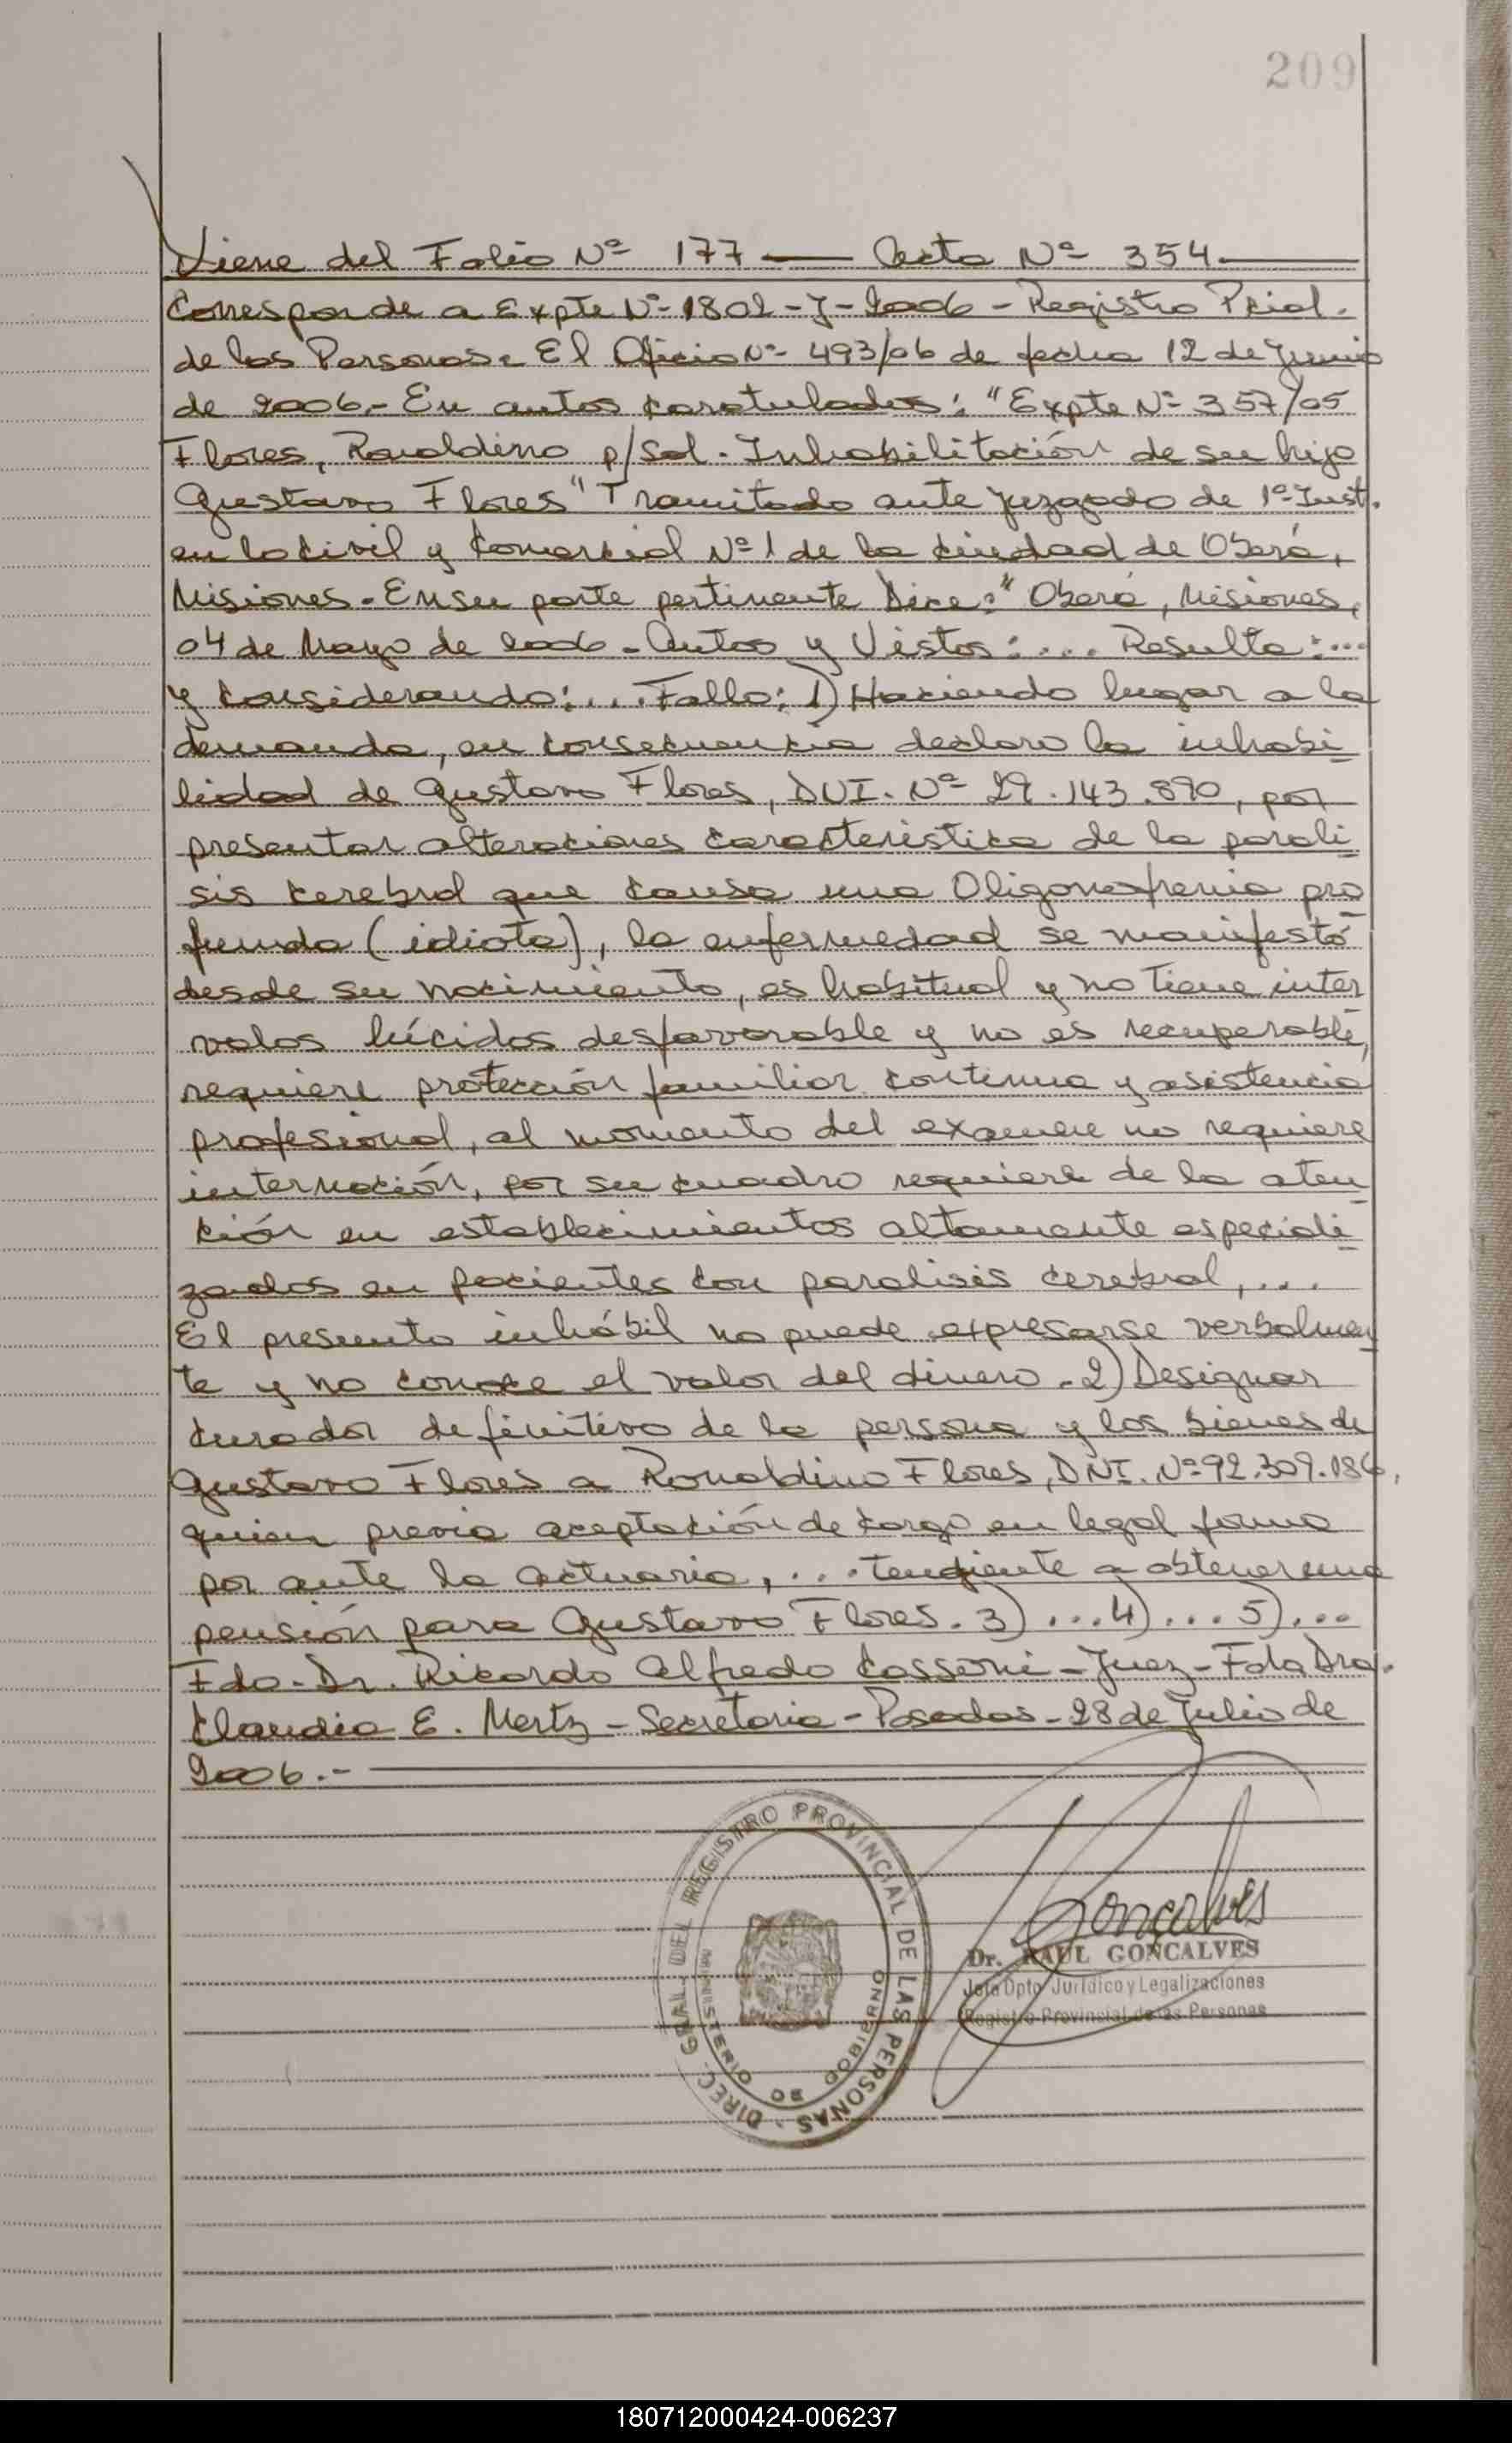 209
Viene del Folio Nº 177 — Acta Nº 354
Corresponde a Expte Nº 1802-J-2006 - Registro Pcial.
de las Personas. El Oficio Nº 493/06 de fecha 12 de Junio
de 2006.- En autos caratulados: "Expte Nº 357/05
Flores, Ronaldino p/Sol. Inhabilitación de su hijo
Gustavo Flores" Tramitado ante Juzgado de 1º Inst.
en lo Civil y Comercial Nº 1 de la Ciudad de Oberá,
Misiones. En su parte pertinente Dice: "Oberá, Misiones,
04 de Mayo de 2006. Autos y Vistos: ... Resulta: ...
y considerando: ... Fallo: 1) Haciendo lugar a la
demanda, en consecuencia declaro la inhabi
lidad de Gustavo Flores, DNI. Nº 29.143.890, por
presentar alteraciones característica de la parali
sis cerebral que causa una Oligonofrenia pro
funda (idiota), la enfermedad se manifestó
desde su nacimiento, es habitual y no tiene inter
valos lúcidos desfavorable y no es recuperable,
requiere protección familiar continua y asistencia
profesional, al momento del examen no requiere
internación, por su cuadro requiere de la aten
ción en establecimientos altamente especiali
zados en pacientes con paralisis cerebral, ...
El presunto inhábil no puede expresarse verbalmen
te y no conoce el valor del dinero. 2) Designar
curador definitivo de la persona y los bienes de
Gustavo Flores a Ronaldino Flores, DNI. Nº 92.309.186,
quien previa aceptación de cargo en legal forma
por ante la actuaria, ... tendiente a obtener una
pensión para Gustavo Flores. 3) ... 4) ... 5) ...
Fdo. Dr. Ricardo Alfredo Cassoni - Juez - Fdo Dra.
Claudia E. Mertz - Secretaria - Posadas - 28 de Julio de
2006.-
DIREC. GRAL. DEL REGISTRO PROVINCIAL DE LAS PERSONAS -
MINISTERIO DE GOBIERNO
Gonçalves
Dr. RAUL GONCALVES
Jefe Dpto Jurídico y Legalizaciones
Registro Provincial de las Personas
180712000424-006237